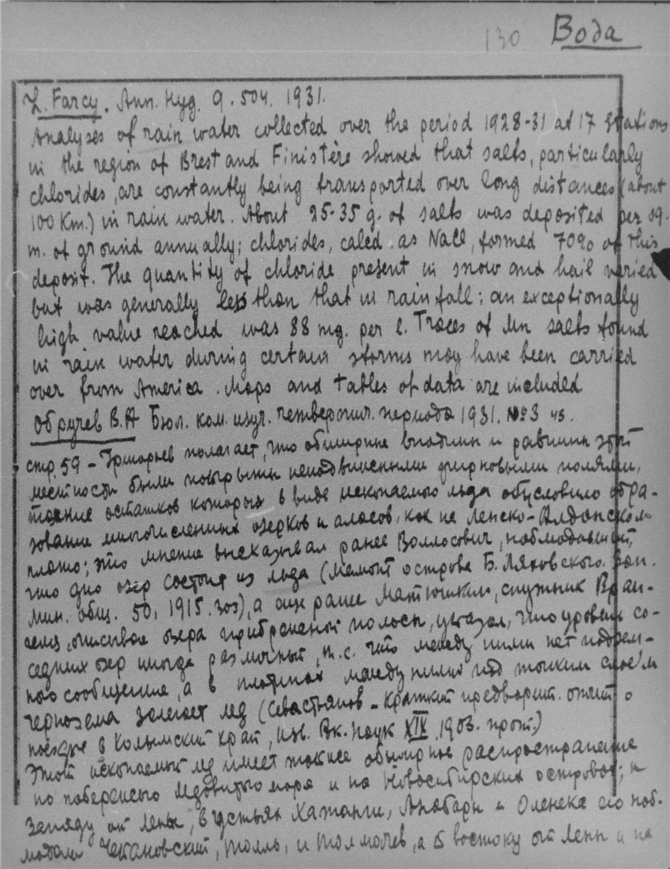 130 Вода
L. Farcy. Ann. Hyg. 9. 504. 1931.
Analyses of rain water collected over the period 1928-31 at 17 stations
in the region of Brest and Finistère showed that salts, particularly
chlorides, are constantly being transported over long distances (about
100 Km.) in rain water. About 25-35 g. of salts was deposited per sq.
m. of ground annually; chlorides, calcd. as NaCl, formed 70% of this
deposit. The quantity of chloride present in snow and hail varied
but was generally less than that in rainfall: an exceptionally
high value reached was 88 mg. per l. Traces of Mn salts found
in rain water during certain storms may have been carried
over from America. Maps and tables of data are included
Обручев В.А Бюл. ком. изуч. четвертич. периода 1931. №3 43.
стр. 59 - Григорьев полагает, что обширные впадины и равнины этой
местности были покрыты неподвижными фирновыми полями,
таяние остатков которых в виде ископаемого льда обусловило обра-
зование многочисленных озерков и аласов, как на Ленско-Алданском
плато; это мнение высказывал ранее Воллосович, наблюдавший,
что дно озер состоит из льда (мамонт острова Б. Ляховского. Зап.
мин. общ. 50, 1915. 305), а еще ранее Матюшкин, спутник Вран-
геля, описывая озера прибрежной полосы, указал, что уровень со-
седних озер иногда различный, т.е. что между ними нет подзем-
ного сообщения, а в плотинах между ними под тонким слоем
чернозема залегает лед (Севастьянов - краткий предварит. отчет о
поездке в Колымский край, Изв. Ак. Наук XIX, 1903. прот.)
Этот ископаемый лед имеет также обширное распространение
по побережью Ледовитого моря и на Новосибирских островах; к
западу от Лены, в устьях Хатанги, Анабары и Оленека его наб-
людали Чекановский, Толль, и Толмачев, а к востоку от Лены и на